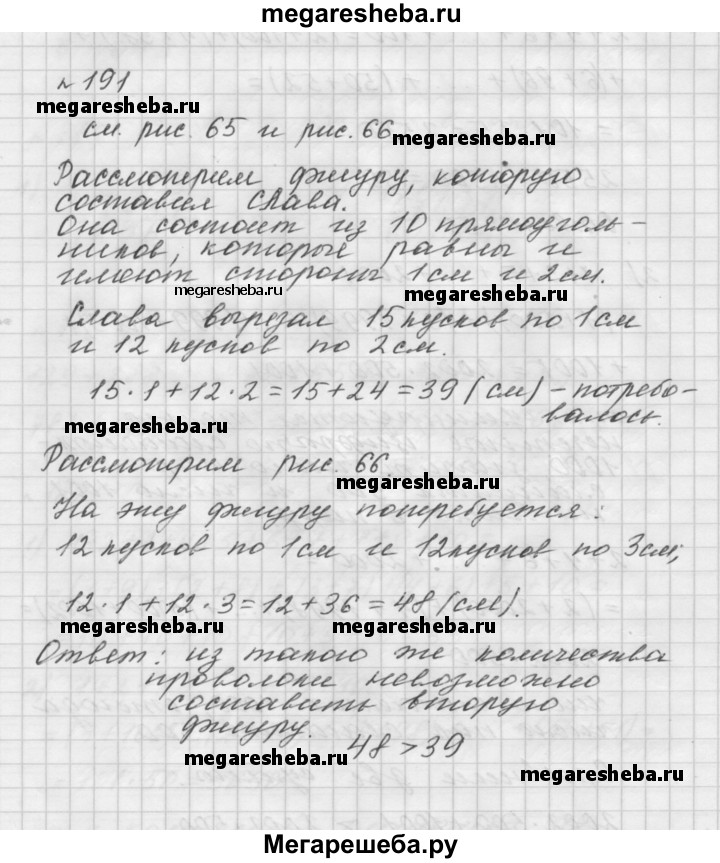 megaresheba.ru
№ 191
megaresheba.ru
см. рис. 65 и рис. 66
megaresheba.ru
Рассмотрим фигуру, которую
составил Слава.
Она состоит из 10 прямоуголь-
ников, которые равны и
имеют стороны 1см и 2см.
megaresheba.ru
megaresheba.ru
Слава вырезал 15 кусков по 1см
и 12 кусков по 2см.
15·1+12·2=15+24=39(см) – потребо-
валось.
megaresheba.ru
Рассмотрим рис. 66.
megaresheba.ru
На эту фигуру потребуется:
12 кусков по 1см и 12 кусков по 3см;
12·1+12·3=12+36=48(см).
megaresheba.ru
megaresheba.ru
Ответ: из такого же количества
проволоки невозможно
составить вторую
фигуру.
48>39
megaresheba.ru
megaresheba.ru
Мегарешеба.ру